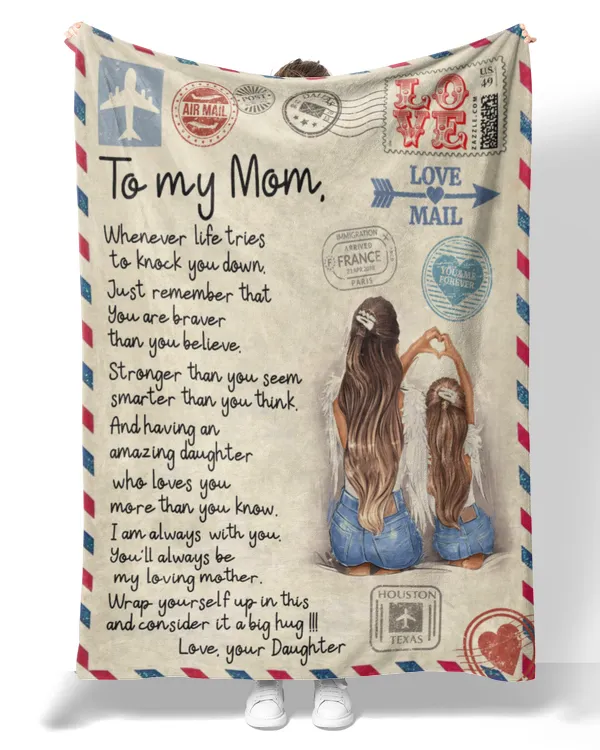 AIR MAIL
POST
LOVE
US
49
ZAZZLE.COM
To my Mom,
LOVE
MAIL
Whenever life tries
to knock you down,
Just remember that
You are braver
than you believe,
Stronger than you seem
smarter than you think,
And having an
amazing daughter
who loves you
more than you know.
I am always with you.
You'll always be
my loving mother.
Wrap yourself up in this
and consider it a big hug !!!
Love, your Daughter
IMMIGRATION
ARRIVED
FRANCE
PARIS
YOU & ME
FOREVER
HOUSTON
TEXAS